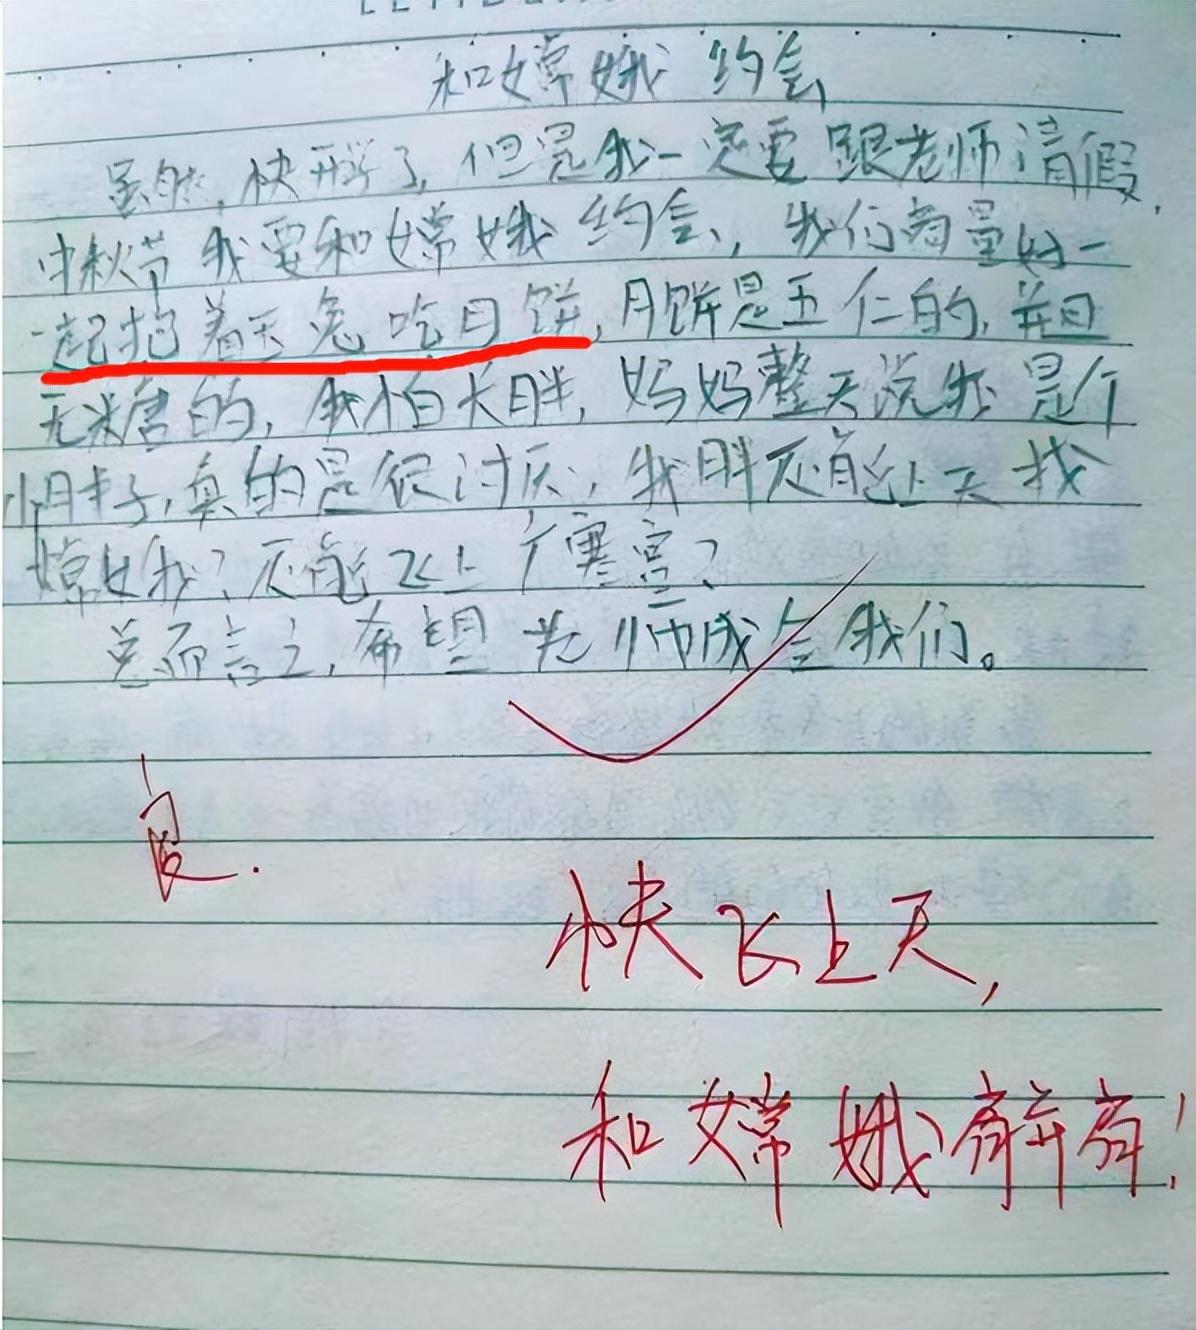 和嫦娥约会
虽然,快开学了,但是我一定要跟老师请假,
中秋节我要和嫦娥约会,我们商量好一
起抱着玉兔吃月饼,月饼是五仁的,并且
无糖的,我怕长胖,妈妈整天说我是个
小胖子,真的是很讨厌,我胖还能上天找
嫦娥?还能飞上广寒宫?
总而言之,希望老师成全我们。
良.
快飞上天,
和嫦娥掰掰!